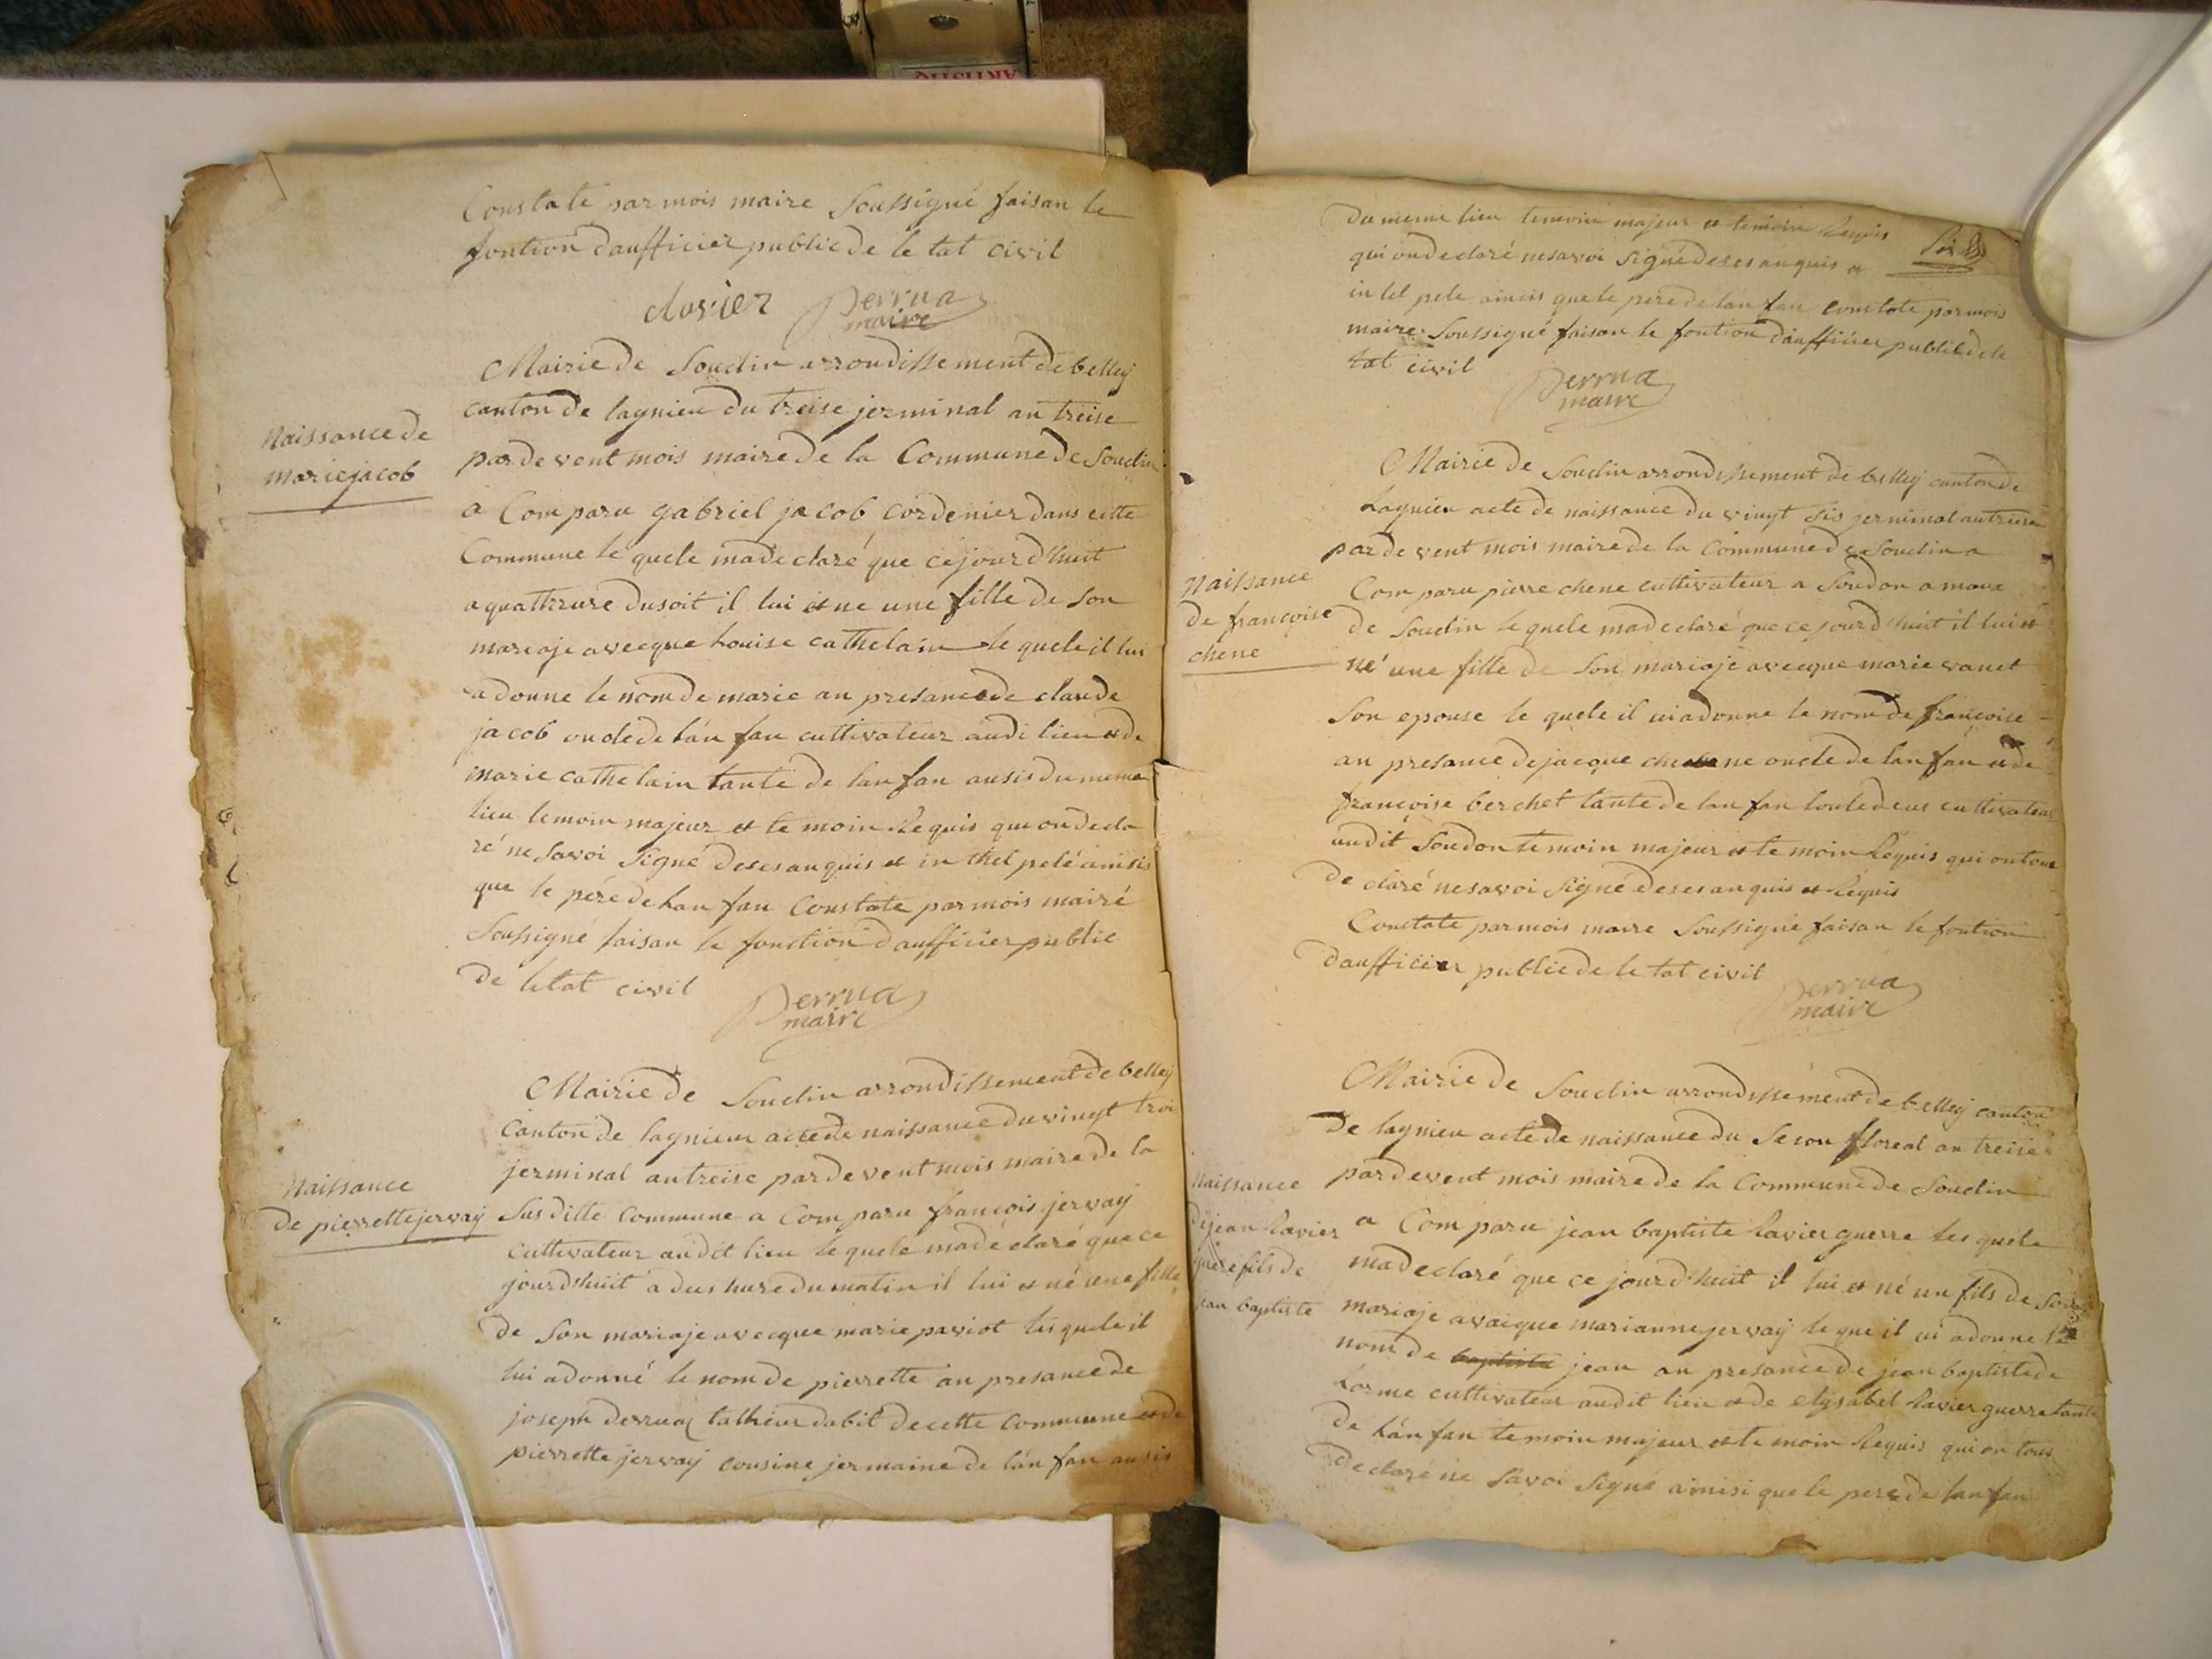 Constate par mois maire Soussigné faisan le
fontion daufficier public de le tat civil
clavier Perrua
maire
Mairie de Soudin arrondissement de belley
canton de lagnieu du treise jerminal an treise
par de vent mois maire de la Commune de Soudin
Naissance de
marie jacob
a Comparu gabriel jacob cordenier dans cette
Commune le quele ma de claré que ce jourd'huit
a quattrure du soit il lui et ne une fille de Son
mariaje avecque Louise cathelain le quele il lui
a donne le nom de marie an presance de claude
jacob oncle de l'an fan cultivateur audi lieu et de
marie cathelain tante de lan fan ausis du meme
lieu temoin majeur et te moin Requis qui on de cla
ré ne Savoi Signé de ses anquis et in thel pelé ainisis
que le pére de lan fan Constate par mois mairé
Soussigné faisan le fonction daufficier public
de letat civil Perrua
maire
Mairie de Soudin arrondissement de belley
Canton de lagnieu acte de naissance du vingt troi
jerminal an treise par de vent mois maire de la
Naissance
de pierrette jervay
Sus ditte Commune a Comparu françois jervay
cultivateur audit lieu le quele ma de claré que ce
jourd'huit a deus hure du matin il lui et né une fille
de Son mariaje avecque marie paviot les quele il
lui a donné le nom de pierrette an presance de
joseph derruaz talheur dabit de cette Commune et de
pierrette jervay cousine jermaine de l'an fan ausis
du meme lieu temoin majeur et temoin Requis
Six
qui on de claré ne savoi Signé de ses anquis a
in tel pele ainsis que le pere de lan fan constate par mois
maire Soussigné faisan le fontion daufficier public de le
tat civil Perrua
maire
Mairie de Soudin arrondissement de belley canton de
Lagnieu acte de naissance du vingt Sis jerminal an treise
par de vent mois maire de la Commune de Soudin a
Naissance
de françoise
chene
Comparu pierre chene cultivateur a Soudon a maux
de Soudin le quele ma de claré que ce jourd'huit il lui et
né une fille de Son mariaje avecque marie vanet
Son epouse le quele il ui a donne le nom de françoise
an presance de jacque chene oncle de lan fan et de
françoise berchet tante de lan fan toute deus cultivateur
audit Soudon temoin majeur et te moin Requis qui on tous
de claré ne savoi Signé de ses anquis et Requis
Constate par mois maire Soussigné faisan le fontion
daufficier public de le tat civil Perrua
maire
Mairie de Soudin arrondissement de belley canton
de lagnieu acte de naissance du Secon floreal an treise
par de vent mois maire de la Commune de Soudin
Naissance
de jean Ravier
guere fils de
jean baptiste
a Comparu jean baptiste Ravier guerre les quele
ma de claré que ce jourd'huit il lui et né un fils de Son
mariaje avaique marianne jervay le que il ui a donne le
nom de baptiste jean an presance de jean baptiste de
Lorme cultivateur audit lieu et de elysabel Ravier guerre tante
de l'an fan temoin majeur et te moin Requis qui on tous
de claré ne Savoi Signé ainisi que le pere de lan fan